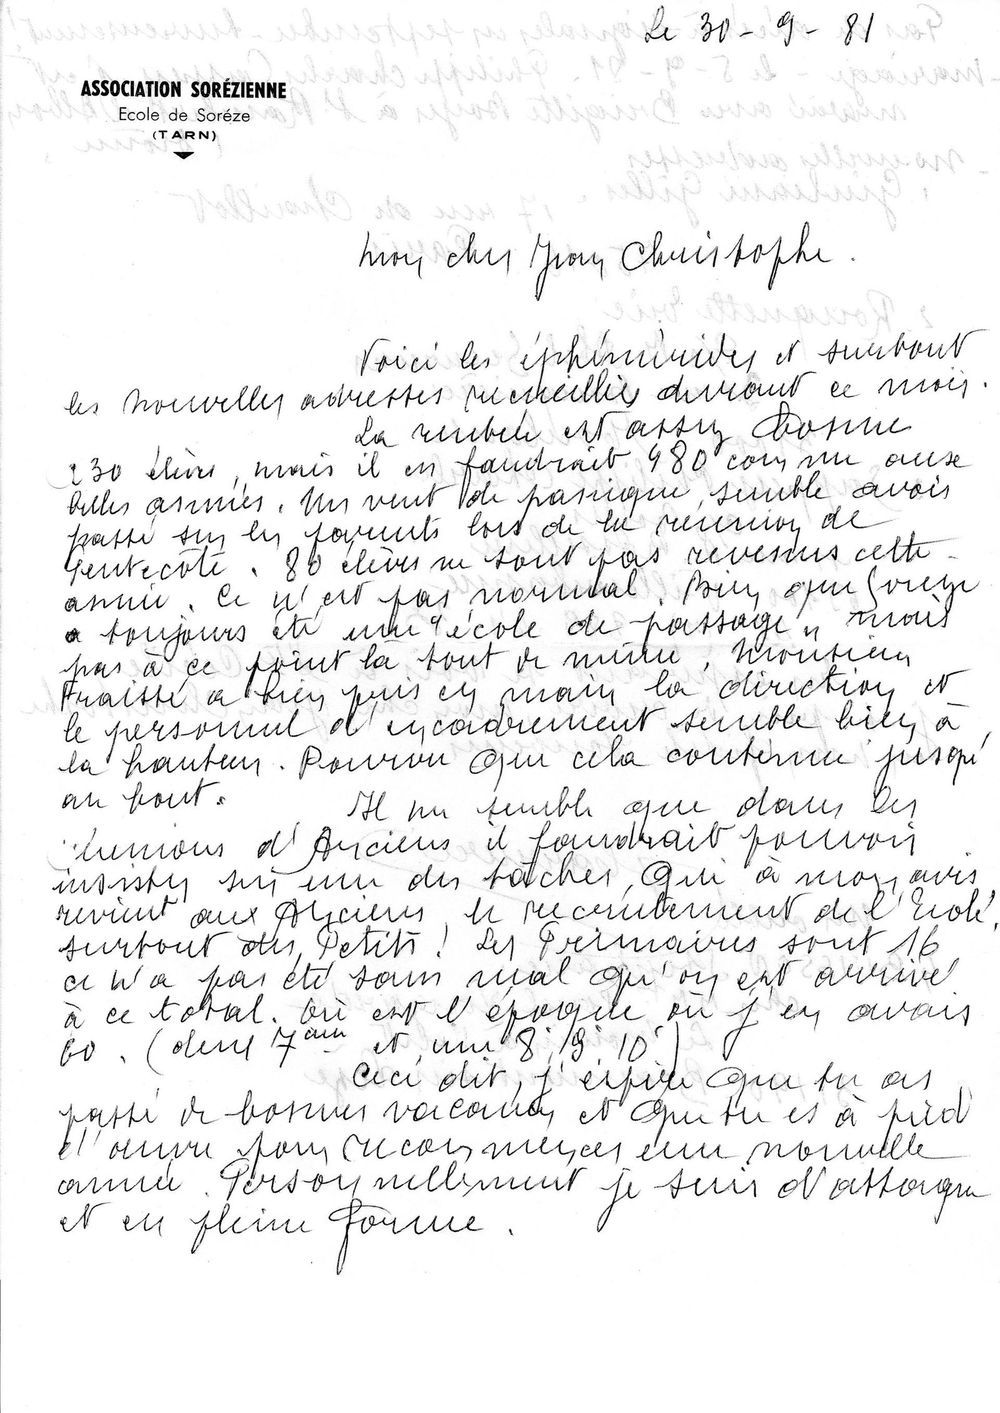 Le 30 - 9 - 81
ASSOCIATION SORÉZIENNE
Ecole de Soréze
(TARN)
Mon cher Jean Christophe.
Voici les éphémérides et surtout
les nouvelles adresses recueillies durant ce mois.
La rentrée est assez bonne
230 élèves, mais il en faudrait 480 comme aux
belles années. Un vent de panique semble avoir
passé sur les parents lors de la réunion de
Pentecôte. 80 élèves ne sont pas revenus cette
année. Ce n'est pas normal. Bien que Sorèze
a toujours été une "école de passage" mais
pas à ce point là tout de même. Monsieur
Fraisse a bien pris en main la direction et
le personnel d'encadrement semble bien à
la hauteur. Pourvu que cela continue jusqu'
au bout.
Il me semble que dans les
réunions d'Anciens il faudrait pouvoir
insister sur une des tâches, qui à mon avis,
revient aux Anciens, le recrutement de l'Ecole,
surtout des Petits! Les Primaires sont 16
ce n'a pas été sans mal qu'on est arrivé
à ce total. Où est l'époque où j'en avais
60. (deux 7ème et une 8, 9, 10)
Ceci dit, j'espère que tu as
passé de bonnes vacances et que tu es à pied
d'œuvre pour recommencer une nouvelle
année. Personnellement je suis d'attaque
et en pleine forme.